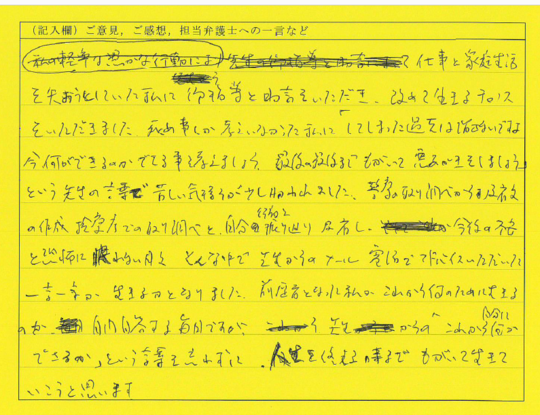 (記入欄) ご意見, ご感想, 担当弁護士への一言など
私の軽率な愚かな行動により 仕事と家庭生活
を失おうとしていた私に 御指導と助言をいただき、改めて生きるチャンス
をいただきました 私に「してしまった過去は消せないですね
今何ができるのか できる事を考えましょう、最後の最後まで もがいて 悪あがきをしましょう」
という先生の言葉で 苦しい気持ちが少し救われました、警察の取り調べから 反省文
の作成 検察庁での取り調べと、自分の行動を振り返り 反省し、 今後の不安
と恐怖に 眠れない日々 そんな中で 先生からのメール 電話で アドバイスいただいた
一言一言が 生きる力となりました、前歴者となった私が これから何のために生きる
のか、自問自答する毎日ですが、 先生からの「これから自分に何が
できるか」という言葉を忘れずに、人生を終える時まで もがいて生きて
いこうと思います